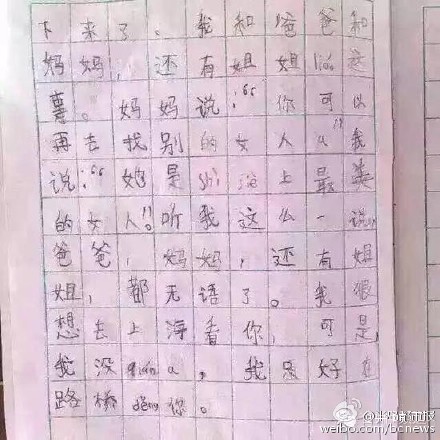 下来了。我和爸爸和
妈妈,还有姐姐liáo这
事。妈妈说:“你可以
再去找别的女人a”我
说:“她是shì jiè上最美
的女人”。听我这么一说,
爸爸,妈妈,还有姐
姐,都无语了。我很
想去上海看你,可是
我没qián a,我只好在
路桥děng你。
weibo.com/bcnews